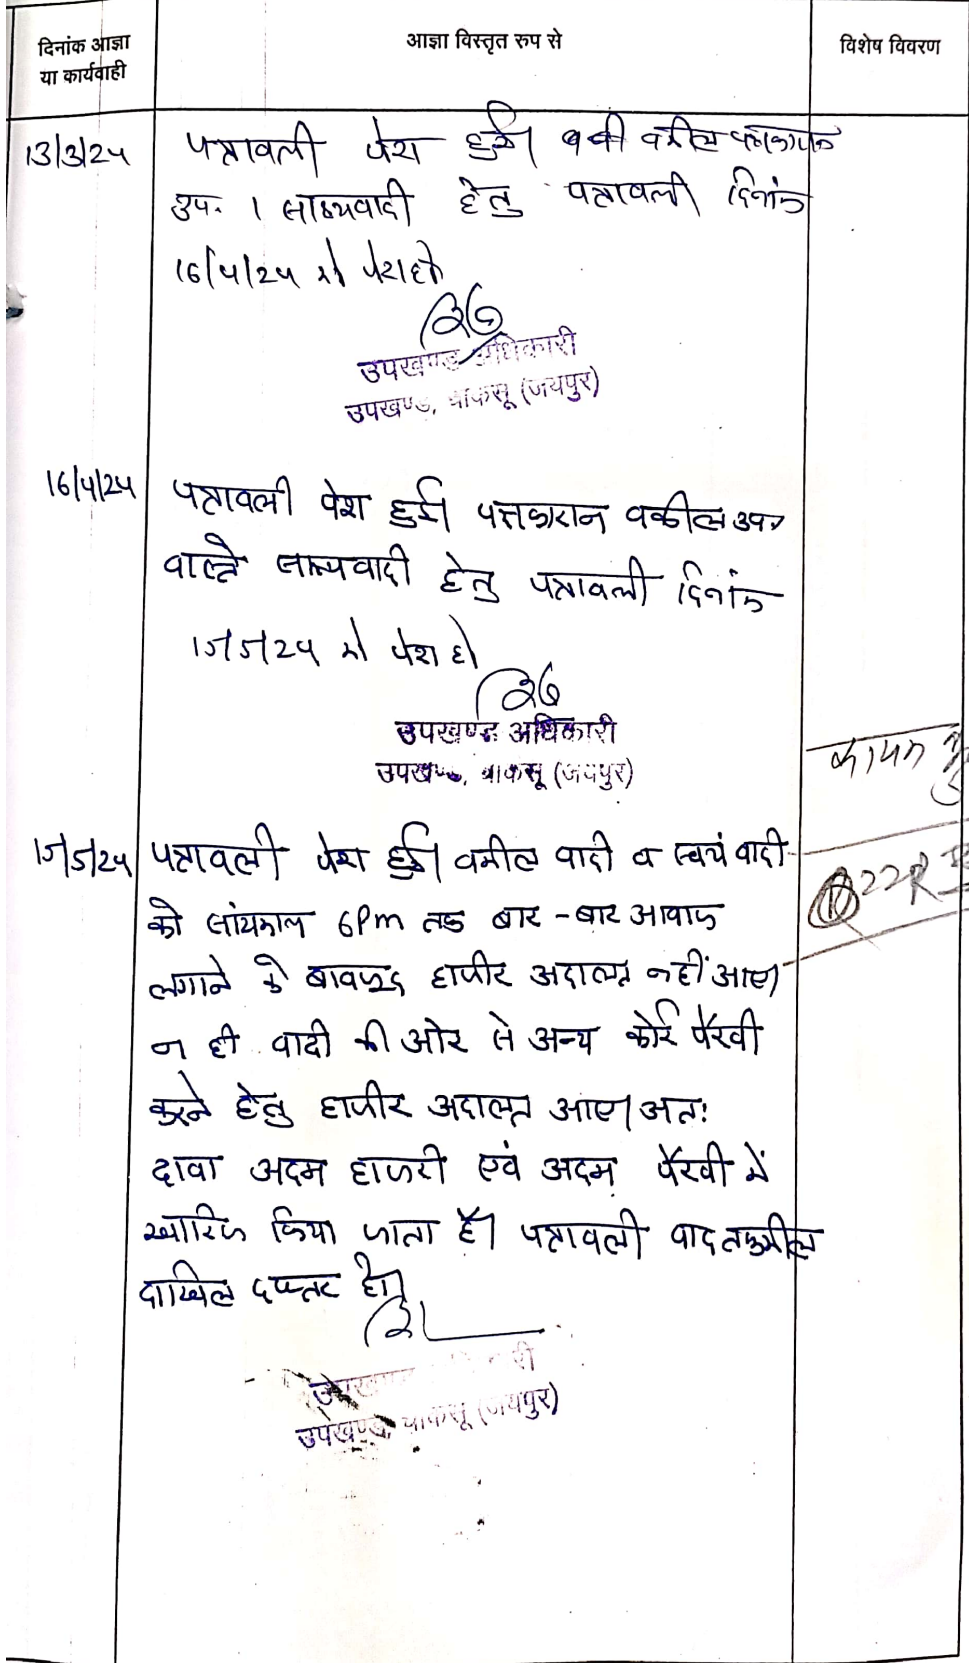 दिनांक आज्ञा
या कार्यवाही
आज्ञा विस्तृत रुप से
विशेष विवरण
13/3/24 पत्रावली पेश हुई। वकील
उप. । साक्ष्यवादी हेतु पत्रावली दिनांक
16/4/24 को पेश हो
उपखण्ड अधिकारी
उपखण्ड, चाकसू (जयपुर)
16/4/24 पत्रावली पेश हुई। पक्षकारान वकील उप०
वास्ते साक्ष्यवादी हेतु पत्रावली दिनांक
15/5/24 को पेश हो
उपखण्ड अधिकारी
उपखण्ड, चाकसू (जयपुर)
कायम
15/5/24 पत्रावली पेश हुई। वकील वादी व स्वयं वादी
को सांयकाल 6 Pm तक बार - बार आवाज
लगाने के बावजूद हाजीर अदालत नहीं आए।
न ही वादी की ओर से अन्य कोई पैरवी
करने हेतु हाजीर अदालत आए। अतः
दावा अदम हाजरी एवं अदम पैरवी में
खारिज किया जाता है। पत्रावली वाद तकमील
दाखिल दफ्तर हो।
उपखण्ड, चाकसू (जयपुर)